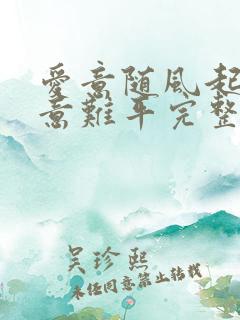 愛意随風起
意難平完整
吴珍熙
未经同意禁止转载